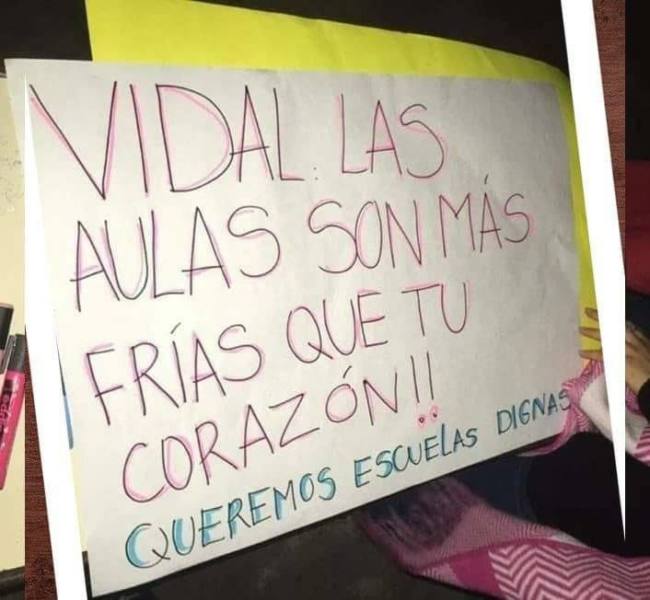 VIDAL: LAS
AULAS SON MÁS
FRÍAS QUE TU
CORAZÓN!!
QUEREMOS ESCUELAS DIGNAS